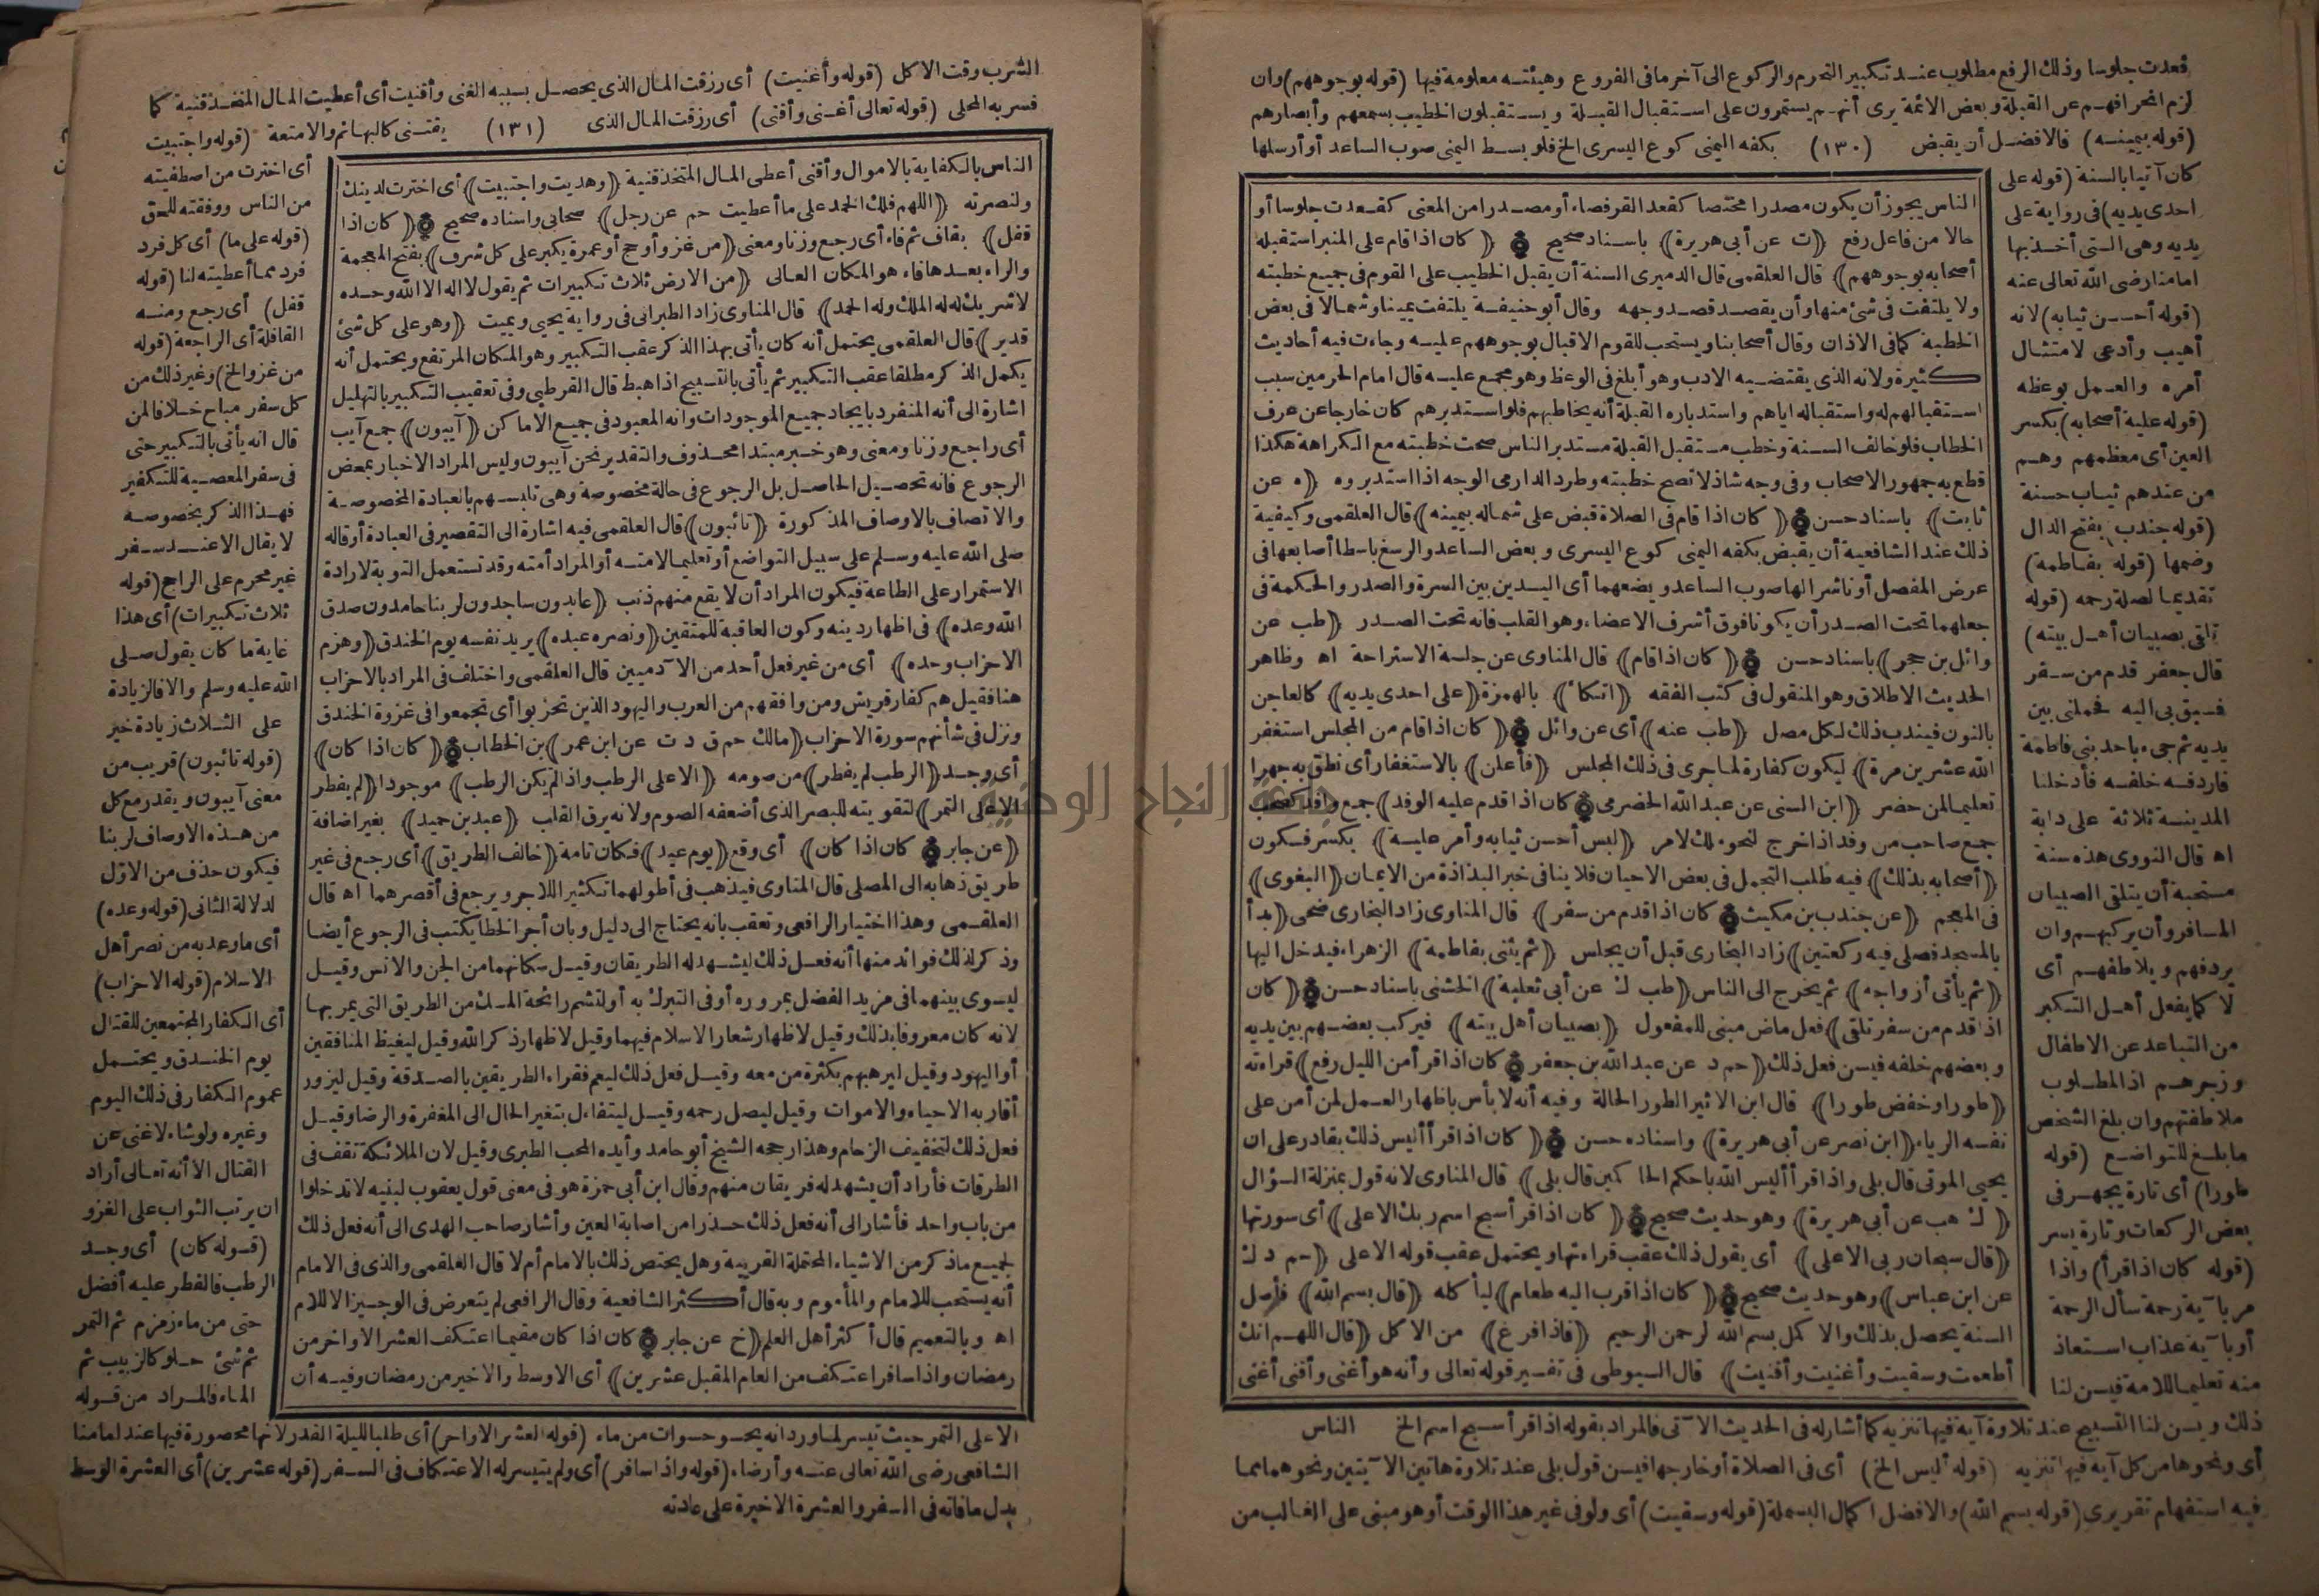 قعدت جلوسا وذلك الرفع مطلوب عند تكبير التحرم والركوع الى آخر ما فى الفروع وهيئته معلومة فيها (قوله بوجوههم) وان
لزم انحرافهم عن القبلة وبعض الائمة يرى أنهم يستمرون على استقبال القبلة ويستقبلون الخطيب بسمعهم وأبصارهم
(قوله بيمينه) فالافضل أن يقبض (١٣٠) بكفه اليمنى كوع اليسرى الخ فلو بسط اليمنى صوب الساعد أو أرسلها
كان آتيا بالسنة (قوله على
احدى يديه) فى رواية على
يديه وهى التى أخذ بها
امامنا رضى الله تعالى عنه
(قوله أحسن ثيابه) لانه
أهيب وأدعى لامتثال
أمره والعمل بوعظه
(قوله علية أصحابه) بكسر
العين أى معظمهم وهم
من عندهم ثياب حسنة
(قوله جندب) بفتح الدال
وضمها (قوله بفاطمة)
تقديما لصلة رحمه (قوله
تلقى بصبيان أهل بيته)
قال جعفر قدم من سفر
فسبق بى اليه فحملنى بين
يديه ثم جىء باحد بنى فاطمة
فاردفه خلفه فأدخلنا
المدينة ثلاثة على دابة
اه قال النووى هذه سنة
مستحبة أن يتلقى الصبيان
المسافر وأن يركبهم وان
يردفهم ويلاطفهم أى
لا كما يفعل أهل التكبر
من التباعد عن الاطفال
وزجرهم اذ المطلوب
ملاطفتهم وان بلغ الشخص
ما بلغ للتواضع (قوله
طورا) أى تارة يجهر فى
بعض الركعات وتارة يسر
(قوله كان اذا قرأ) واذا
مر بآية رحمة سأل الرحمة
أو بآية عذاب استعاذ
منه تعليما للامة فيسن لنا
الناس يجوز أن يكون مصدرا مختصا كقعد القرفصاء أو مصدرا من المعنى كقعدت جلوسا أو
حالا من فاعل رفع (ت عن أبى هريرة) باسناد صحيح (كان اذا قام على المنبر استقبله
أصحابه بوجوههم) قال العلقمى قال الدميرى السنة أن يقبل الخطيب على القوم فى جميع خطبته
ولا يلتفت فى شئ منها وأن يقصد قصد وجهه وقال أبو حنيفة يلتفت يمينا وشمالا فى بعض
الخطبة كما فى الاذان وقال أصحابنا ويستحب للقوم الاقبال بوجوههم عليه وجاءت فيه أحاديث
كثيرة ولانه الذى يقتضيه الادب وهو أبلغ فى الوعظ وهو مجمع عليه قال امام الحرمين سبب
استقبالهم له واستقباله اياهم واستدباره القبلة أنه يخاطبهم فلو استدبرهم كان خارجا عن عرف
الخطاب فلو خالف السنة وخطب مستقبل القبلة مستدبر الناس صحت خطبته مع الكراهة هكذا
قطع به جمهور الاصحاب وفى وجه شاذ لا تصح خطبته وطرد الدارمى الوجه اذا استدبروه (ه عن
ثابت) باسناد حسن (كان اذا قام فى الصلاة قبض على شماله بيمينه) قال العلقمى وكيفية
ذلك عند الشافعية أن يقبض بكفه اليمنى كوع اليسرى وبعض الساعد والرسغ باسطا أصابعها فى
عرض المفصل أو ناشرا لها صوب الساعد ويضعهما أى اليدين بين السرة والصدر والحكمة فى
جعلهما تحت الصدر أن يكونا فوق أشرف الاعضاء وهو القلب فانه تحت الصدر (طب عن
وائل بن حجر) باسناد حسن (كان اذا قام) قال المناوى عن جلسة الاستراحة اه وظاهر
الحديث الاطلاق وهو المنقول فى كتب الفقه (اتكأ) بالهمزة (على احدى يديه) كالعاجن
بالنون فيندب ذلك لكل مصل (طب عنه) أى عن وائل (كان اذا قام من المجلس استغفر
الله عشرين مرة) ليكون كفارة لما جرى فى ذلك المجلس (فأعلن) بالاستغفار أى نطق به جهرا
تعليما لمن حضر (ابن السنى عن عبد الله الحضرمى كان اذا قدم عليه الوفد) جمع وافد كصحب
جمع صاحب من وفد اذا خرج لنحو ملك لامر (لبس أحسن ثيابه وأمر علية) بكسر فسكون
(أصحابه بذلك) فيه طلب التجمل فى بعض الاحيان فلا ينافى خبر البذاذة من الايمان (البغوى)
فى المعجم (عن جندب بن مكيث كان اذا قدم من سفر) قال المناوى زاد البخارى ضحى (بدأ
بالمسجد فصلى فيه ركعتين) زاد البخارى قبل أن يجلس (ثم يثنى بفاطمة) الزهراء فيدخل اليها
(ثم يأتى أزواجه) ثم يخرج الى الناس (طب ك عن أبى ثعلبة) الخشنى باسناد حسن (كان
اذا قدم من سفر تلقى) فعل ماض مبنى للمفعول (بصبيان أهل بيته) فيركب بعضهم بين يديه
وبعضهم خلفه فيسن فعل ذلك (حم د عن عبد الله بن جعفر كان اذا قرأ من الليل رفع) قراءته
(طورا وخفض طورا) قال ابن الاثير الطور الحالة وفيه أنه لا بأس باظهار العمل لمن أمن على
نفسه الرياء (ابن نصر عن أبى هريرة) واسناده حسن (كان اذا قرأ أليس ذلك بقادر على ان
يحيى الموتى قال بلى واذا قرأ أليس الله باحكم الحاكمين قال بلى) قال المناوى لانه قول بمنزلة السؤال
(ك هب عن أبى هريرة) وهو حديث صحيح (كان اذا قرأ سبح اسم ربك الاعلى) أى سورتها
(قال سبحان ربى الاعلى) أى يقول ذلك عقب قراءتها ويحتمل عقب قوله الاعلى (حم د ك
عن ابن عباس) وهو حديث صحيح (كان اذا قرب اليه طعام) ليأكله (قال بسم الله) فأصل
السنة يحصل بذلك والاكمل بسم الله الرحمن الرحيم (فاذا فرغ) من الاكل (قال اللهم انك
أطعمت وسقيت وأغنيت وأقنيت) قال السيوطى فى تفسير قوله تعالى وأنه هو أغنى وأقنى أغنى
ذلك ويسن لنا التسبيح عند تلاوة آية فيها تنزيه كما أشار له فى الحديث الآتى فالمراد بقوله اذا قرأ سبح اسم الخ الناس
أى ونحوها من كل آية فيها تنزيه (قوله أليس الخ) أى فى الصلاة أو خارجها فيسن قول بلى عند تلاوة هاتين الآيتين ونحوهما مما
فيه استفهام تقريرى (قوله بسم الله) والافضل اكمال البسملة (قوله وسقيت) أى ولو فى غير هذا الوقت أو هو مبنى على الغالب من
الشرب وقت الاكل (قوله وأغنيت) أى رزقت المال الذى يحصل بسببه الغنى وأقنيت أى أعطيت المال المتخذ قنية كما
فسر به المحلى (قوله تعالى أغنى وأقنى) أى رزقت المال الذى (١٣١) يقتنى كالبهائم والامتعة (قوله واجتبيت
الناس بالكفاية بالاموال وأقنى أعطى المال المتخذ قنية (وهديت واجتبيت) أى اخترت لدينك
ولنصرته (اللهم فلك الحمد على ما أعطيت حم عن رجل) صحابى واسناده صحيح (كان اذا
قفل) بقاف ثم فاء أى رجع وزنا ومعنى (من غزو أو حج أو عمرة يكبر على كل شرف) بفتح المعجمة
والراء بعدها فاء هو المكان العالى (من الارض ثلاث تكبيرات ثم يقول لا اله الا الله وحده
لا شريك له له الملك وله الحمد) قال المناوى زاد الطبرانى فى رواية يحيى ويميت (وهو على كل شئ
قدير) قال العلقمى يحتمل أنه كان يأتى بهذا الذكر عقب التكبير وهو المكان المرتفع ويحتمل أنه
يكمل الذكر مطلقا عقب التكبير ثم يأتى بالتسبيح اذا هبط قال القرطبى وفى تعقيب التكبير بالتهليل
اشارة الى أنه المنفرد بايجاد جميع الموجودات وانه المعبود فى جميع الاماكن (آيبون) جمع آيب
أى راجع وزنا ومعنى وهو خبر مبتدا محذوف والتقدير نحن آيبون وليس المراد الاخبار بمعض
الرجوع فانه تحصيل الحاصل بل الرجوع فى حالة مخصوصة وهى تلبسهم بالعبادة المخصوصة
والاتصاف بالاوصاف المذكورة (تائبون) قال العلقمى فيه اشارة الى التقصير فى العبادة أو قاله
صلى الله عليه وسلم على سبيل التواضع أو تعليما لامته أو المراد أمته وقد تستعمل التوبة لارادة
الاستمرار على الطاعة فيكون المراد أن لا يقع منهم ذنب (عابدون ساجدون لربنا حامدون صدق
الله وعده) فى اظهار دينه وكون العاقبة للمتقين (ونصر عبده) يريد نفسه يوم الخندق (وهزم
الاحزاب وحده) أى من غير فعل أحد من الآدميين قال العلقمى واختلف فى المراد بالاحزاب
هنا فقيل هم كفار قريش ومن وافقهم من العرب واليهود الذين تحزبوا أى تجمعوا فى غزوة الخندق
ونزل فى شأنهم سورة الاحزاب (مالك حم ق د ت عن ابن عمر) بن الخطاب (كان اذا كان)
أى وجد (الرطب لم يفطر) من صومه (الا على الرطب واذا لم يكن الرطب) موجودا (لم يفطر
الا على التمر) لتقويته للبصر الذى أضعفه الصوم ولانه يرق القلب (عبد بن حميد) بغير اضافة
(عن جابر كان اذا كان) أى وقع (يوم عيد) فكان تامة (خالف الطريق) أى رجع فى غير
طريق ذهابه الى المصلى قال المناوى فيذهب فى أطولهما تكثيرا للاجر ويرجع فى أقصرهما اه قال
العلقمى وهذا اختيار الرافعى وتعقب بانه يحتاج الى دليل وبان أجر الخطا يكتب فى الرجوع أيضا
وذكر لذلك فوائد منها أنه فعل ذلك ليشهد له الطريقان وقيل سكانهما من الجن والانس وقيل
ليسوى بينهما فى مزيد الفضل بمروره أو فى التبرك به أو لتشم رائحة المسك من الطريق التى يمر بها
لانه كان معروفا بذلك وقيل لاظهار شعار الاسلام فيهما وقيل لاظهار ذكر الله وقيل ليغيظ المنافقين
أو اليهود وقيل ليرهبهم بكثرة من معه وقيل فعل ذلك ليعم فقراء الطريقين بالصدقة وقيل ليزور
أقاربه الاحياء والاموات وقيل ليصل رحمه وقيل ليتفاءل بتغير الحال الى المغفرة والرضا وقيل
فعل ذلك لتخفيف الزحام وهذا رجحه الشيخ أبو حامد وأيده المحب الطبرى وقيل لان الملائكة تقف فى
الطرقات فأراد أن يشهد له فريقان منهم وقال ابن أبى جمرة هو فى معنى قول يعقوب لبنيه لا تدخلوا
من باب واحد فأشار الى أنه فعل ذلك حذرا من اصابة العين وأشار صاحب الهدى الى أنه فعل ذلك
لجميع ما ذكر من الاشياء المحتملة القريبة وهل يختص ذلك بالامام أم لا قال العلقمى والذى فى الامام
أنه يستحب للامام والمأموم وبه قال أكثر الشافعية وقال الرافعى لم يتعرض فى الوجيز الا للامام
اه وبالتعميم قال أكثر أهل العلم (خ عن جابر كان اذا كان مقيما اعتكف العشر الاواخر من
رمضان واذا سافر اعتكف من العام المقبل عشرين) أى الاوسط والاخير من رمضان وفيه أن
أى اخترت من اصطفيته
من الناس ووفقته للحق
(قوله على ما) أى كل فرد
فرد مما أعطيته لنا (قوله
قفل) أى رجع ومنه
القافلة أى الراجعة (قوله
من غزو الخ) وغير ذلك من
كل سفر مباح خلافا لمن
قال انه يأتى بالتكبير حتى
فى سفر المعصية للتكفير
فهذا الذكر بخصوصه
لا يقال الا عند سفر
غير محرم على الراجح (قوله
ثلاث تكبيرات) أى هذا
غاية ما كان يقول صلى
الله عليه وسلم والا فالزيادة
على الثلاث زيادة خير
(قوله تائبون) قريب من
معنى آيبون ويقدر مع كل
من هذه الاوصاف لربنا
فيكون حذف من الاول
لدلالة الثانى (قوله وعده)
أى ما وعد به من نصر أهل
الاسلام (قوله الاحزاب)
أى الكفار المجتمعين للقتال
يوم الخندق ويحتمل
عموم الكفار فى ذلك اليوم
وغيره ولو شاء لاغنى عن
القتال الا أنه تعالى أراد
ان يرتب الثواب على الغزو
(قوله كان) أى وجد
الرطب فالفطر عليه أفضل
حتى من ماء زمزم ثم التمر
ثم شئ حلو كالزبيب ثم
الماء والمراد من قوله
الا على التمر حيث تيسر لما ورد انه يحسو حسوات من ماء (قوله العشر الاواخر) أى طلبا لليلة القدر لانها محصورة فيها عند امامنا
الشافعى رضى الله تعالى عنه وأرضاه (قوله واذا سافر) أى ولم يتيسر له الاعتكاف فى السفر (قوله عشرين) أى العشرة الوسط
بدل ما فاته فى السفر والعشرة الاخيرة على عادته
جامعة النجاح الوطنية